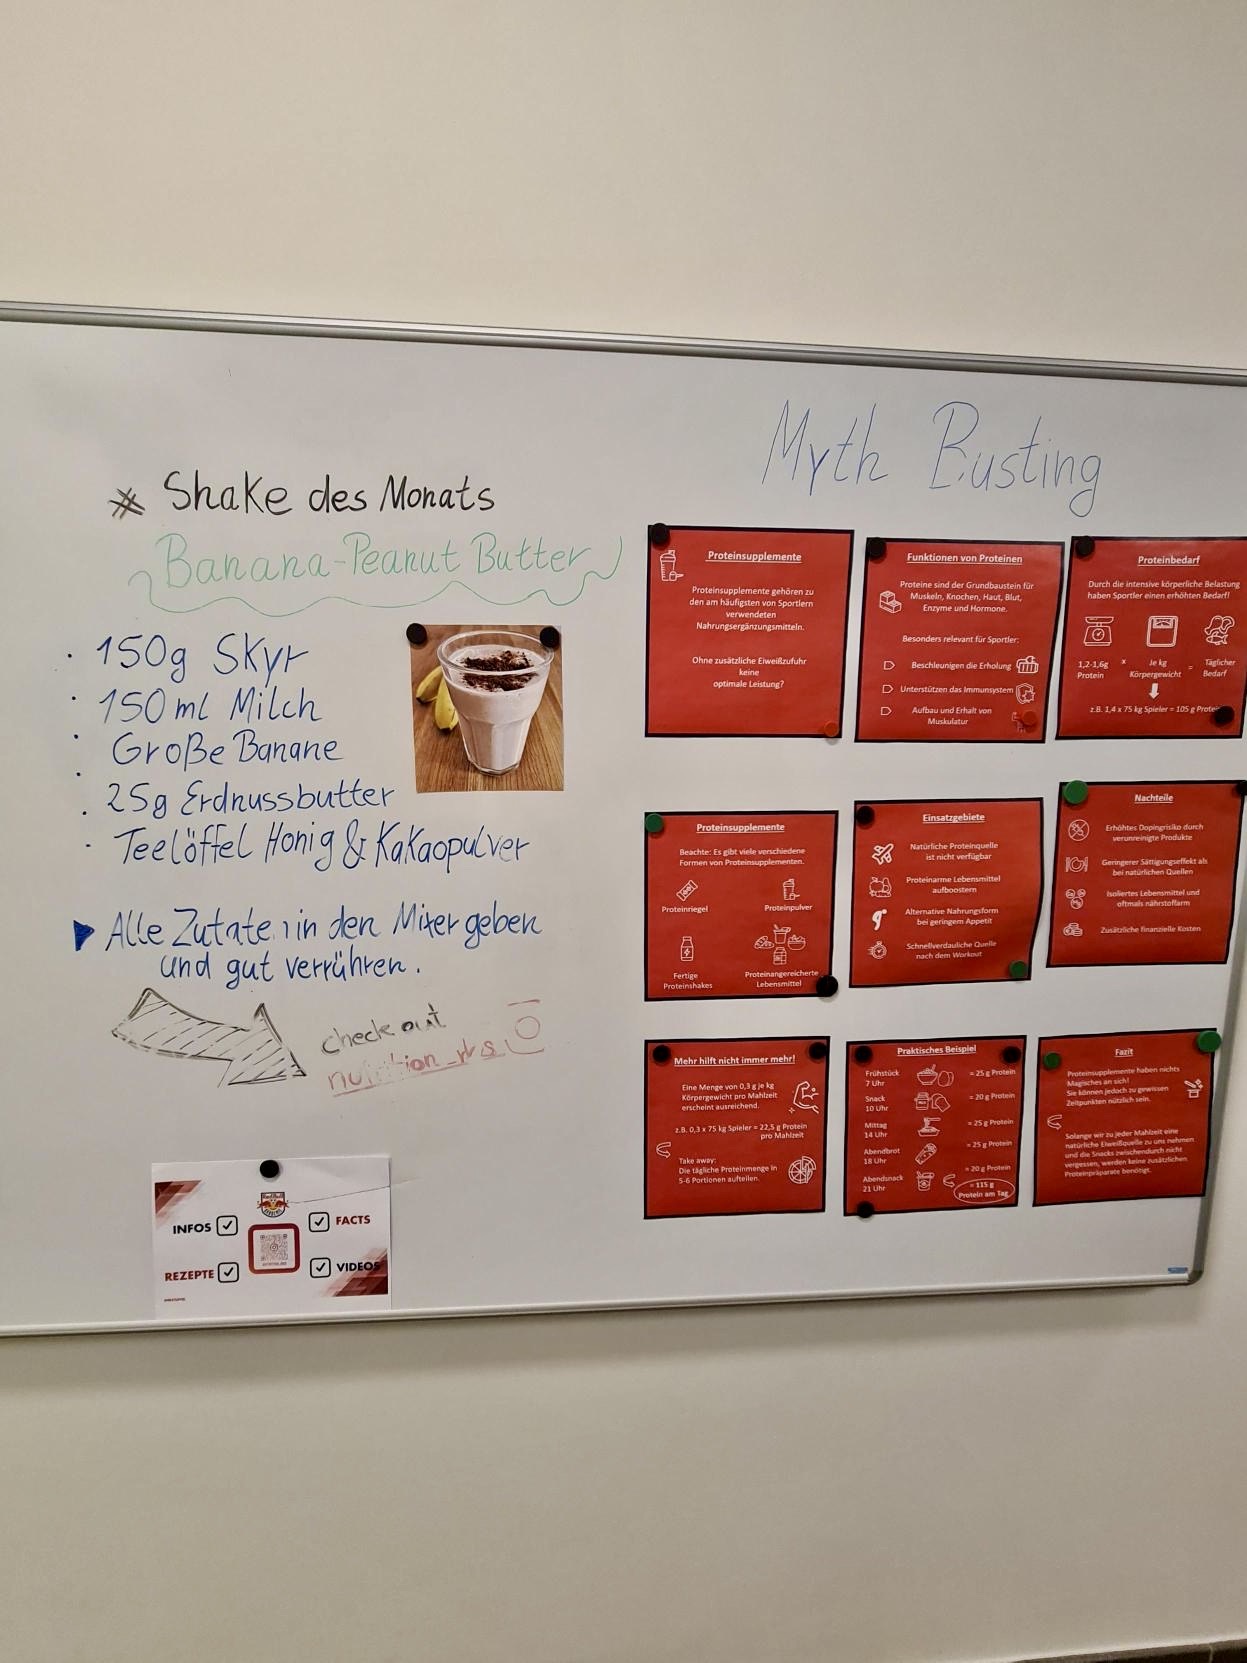 # Shake des Monats
Banana-Peanut Butter
· 150g Skyr
· 150 ml Milch
· Große Banane
· 25g Erdnussbutter
· Teelöffel Honig & Kakaopulver
Alle Zutaten in den Mixer geben
und gut verrühren.
check out
INFOS
FACTS
REZEPTE
VIDEOS
Myth Busting
Proteinsupplemente
Proteinsupplemente gehören zu
den am häufigsten von Sportlern
verwendeten
Nahrungsergänzungsmitteln.
Ohne zusätzliche Eiweißzufuhr
keine
optimale Leistung?
Funktionen von Proteinen
Proteine sind der Grundbaustein für
Muskeln, Knochen, Haut, Blut,
Enzyme und Hormone.
Besonders relevant für Sportler:
Beschleunigen die Erholung
Unterstützen das Immunsystem
Aufbau und Erhalt von
Muskulatur
Proteinbedarf
Durch die intensive körperliche Belastung
haben Sportler einen erhöhten Bedarf!
1,2-1,6g
Protein
x
Je kg
Körpergewicht
=
Täglicher
Bedarf
z.B. 1,4 x 75 kg Spieler = 105 g Protein
Proteinsupplemente
Beachte: Es gibt viele verschiedene
Formen von Proteinsupplementen.
Proteinriegel
Proteinpulver
Fertige
Proteinshakes
Proteinangereicherte
Lebensmittel
Einsatzgebiete
Natürliche Proteinquelle
ist nicht verfügbar
Proteinarme Lebensmittel
aufboostern
Alternative Nahrungsform
bei geringem Appetit
Schnellverdauliche Quelle
nach dem Workout
Nachteile
Erhöhtes Dopingrisiko durch
verunreinigte Produkte
Geringerer Sättigungseffekt als
bei natürlichen Quellen
Isoliertes Lebensmittel und
oftmals nährstoffarm
Zusätzliche finanzielle Kosten
Mehr hilft nicht immer mehr!
Eine Menge von 0,3 g je kg
Körpergewicht pro Mahlzeit
erscheint ausreichend.
z.B. 0,3 x 75 kg Spieler = 22,5 g Protein
pro Mahlzeit
Take away:
Die tägliche Proteinmenge in
5-6 Portionen aufteilen.
Praktisches Beispiel
Frühstück
7 Uhr
= 25 g Protein
Snack
10 Uhr
= 20 g Protein
Mittag
14 Uhr
= 25 g Protein
Abendbrot
18 Uhr
= 25 g Protein
Abendsnack
21 Uhr
= 20 g Protein
= 115 g
Protein am Tag
Fazit
Proteinsupplemente haben nichts
Magisches an sich!
Sie können jedoch zu gewissen
Zeitpunkten nützlich sein.
Solange wir zu jeder Mahlzeit eine
natürliche Eiweißquelle zu uns nehmen
und die Snacks zwischendurch nicht
vergessen, werden keine zusätzlichen
Proteinpräparate benötigt.